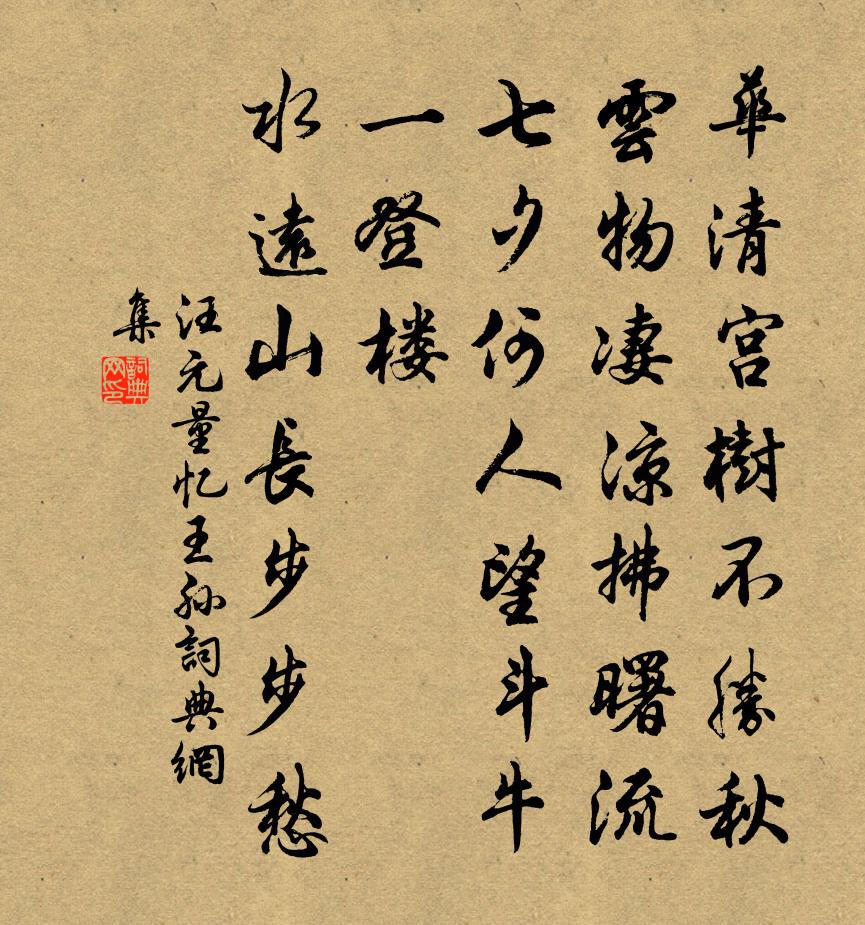 華清宮樹不勝秋
雲物凄涼拂曙流
七夕何人望斗牛
一登楼
水遠山長步步愁
汪元量忆王孙詞典網
集
詞典
网印